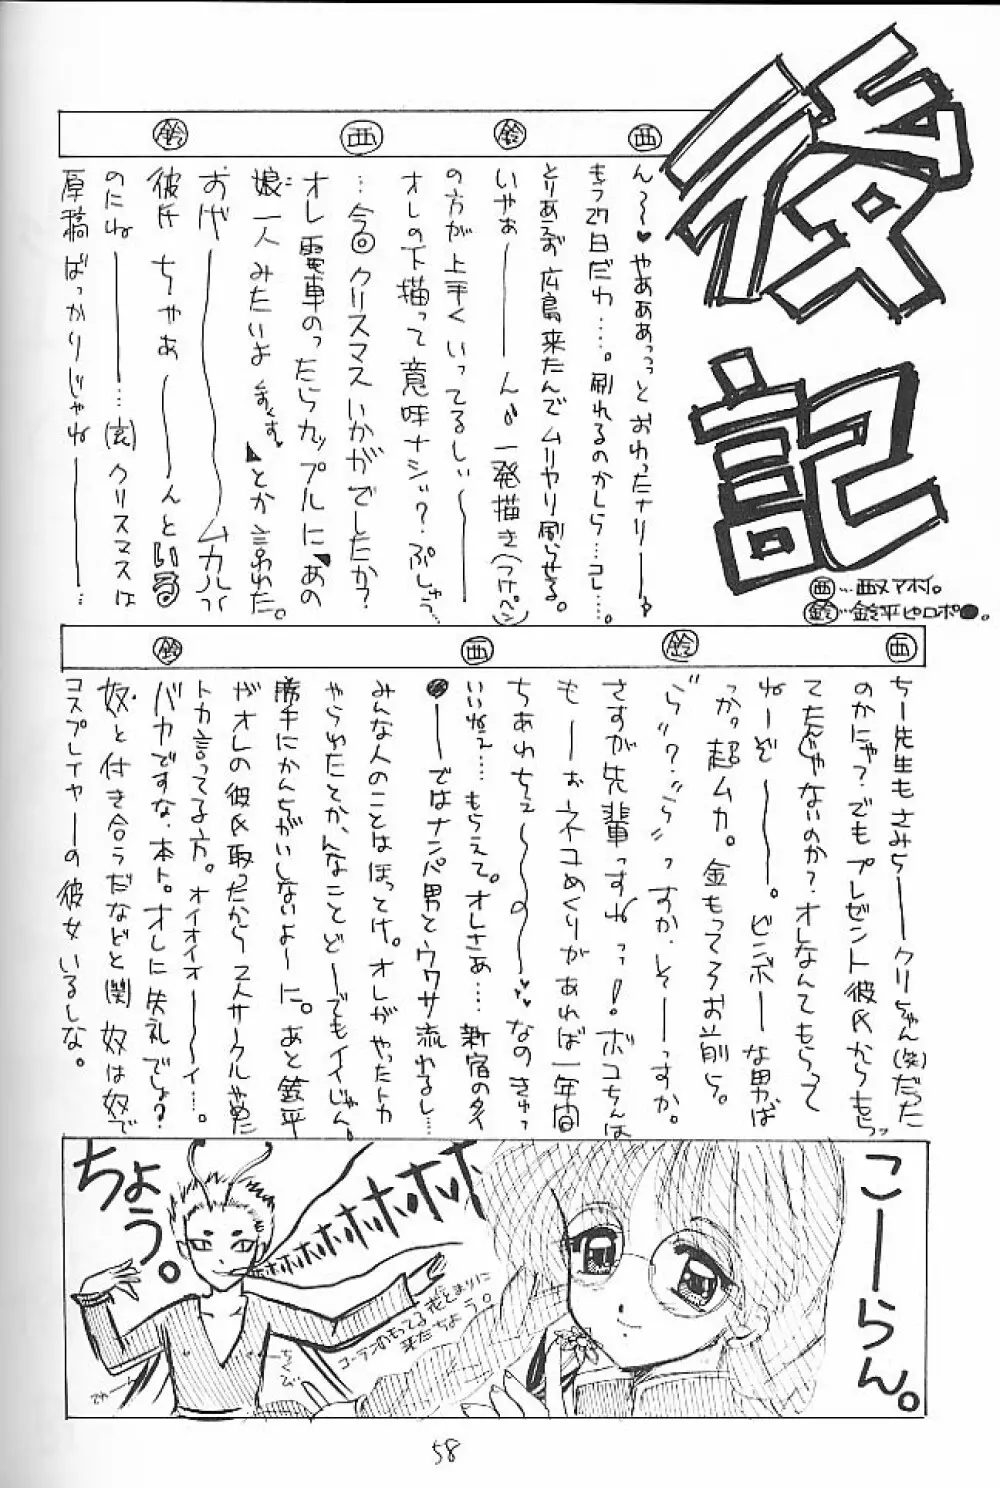 後記
㊄…西又アオイ。
㊄…鈴平ピロポ●。
西
ん〜〜♥やああぁっっとおわったナリ――♪
もう27日だわ……。刷れるのかしら…コレ…。
とりあえず広島来たんでムリヤリ刷らせる。
鈴
いやぁ――――ん♪一発描き(つけペン)
の方が上手くいってるしぃ――――
オレの下描って意味ナシ゛?ぷしゅう…
西
…今回クリスマスいかがでしたか?
オレ電車のったらカップルに「あの
娘一人みたいよくすくす♥」とか言われた。
おのれ――――ムカルル
鈴
彼氏ちゃぁ――――んといる
のにね――――…(玄)クリスマスは
原稿ばっかりじゃね――――…
西
ちー先生もさみら――――クリちゃん(笑)だった
のかにゃ?でもプレゼント彼氏からもらっ
てたんじゃないのか?オレなんてもらって
ねーぞ――――。ビンボーな男ば
っか。超ムカ。金もってろお前ら。
鈴
"ら"?"ら"っすか。そーっすか。
さすが先輩っすねっっ!ボコちんは
もーぉネコめくりがあれば一年間
ちあわちぇ〜〜〜♥♥なのきゅっ
西
いいねぇ……もらえて。オレさぁ……新宿の夕
●――ではナンパ男とウワサ流れるし…
みんな人のことはほっとけ。オレがやったトカ
やられたとか、んなことど――でもイイじゃん。
勝手にかんちがいしないよーに。あと鈴平
がオレの彼氏取ったから2人サークルやめた
トカ言ってる方。オイオイオ――――イ…。
鈴
バカですな、本ト。オレに失礼でしょ?
奴と付き合うだなどと(関)奴は奴で
コスプレイヤーの彼女いるしな。
こーらん。
ちょう。
ホホホホホホホホ
コーランのもってる花にとまりに
来たちょう。
ちくび
58